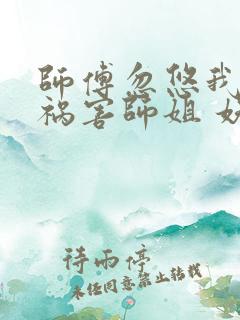 師傅忽悠我
祸害師姐
待雨停
未经同意禁止转载